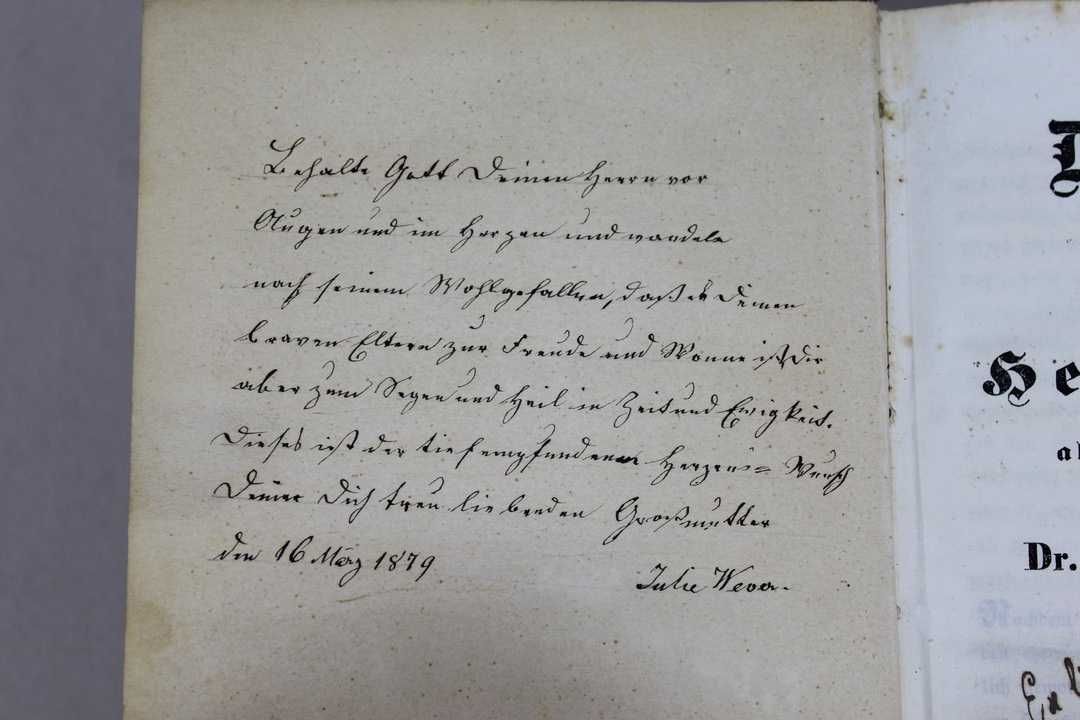 Behalte Gott Deinen Herrn vor
Augen und im Herzen und wandele
nach seinem Wohlgefallen, daß es Deinen
braven Eltern zur Freude und Wonne ist, Dir
aber zum Segen und Heil in Zeit und Ewigkeit.
Dieses ist der tiefempfundene Herzens= Wunsch
Deiner Dich treu liebenden Großmutter
den 16 März 1879
Julie Wever.
He
al
Dr.